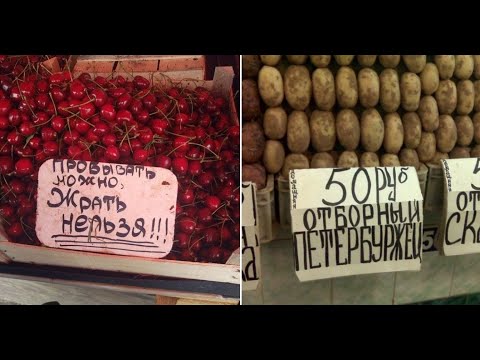 Пробывать
можно,
Жрать
нельзя!!!
50 руб
ОТБОРНЫЙ
ПЕТЕРБУРЖЕЙ
СК